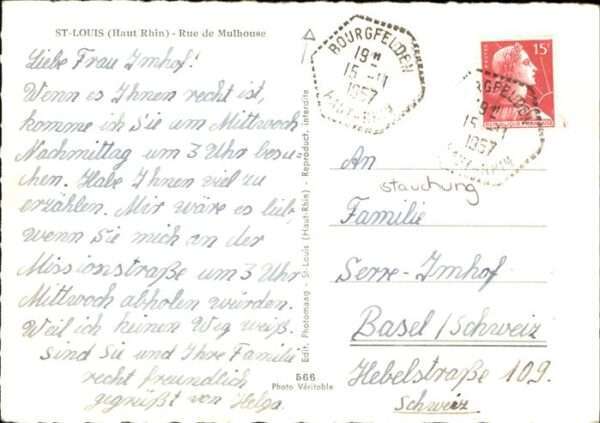 ST-LOUIS (Haut Rhin) - Rue de Mulhouse
Liebe Frau Imhof!
Wenn es Ihnen recht ist,
komme ich Sie um Mittwoch
Nachmittag um 3 Uhr besu-
chen. Habe Ihnen viel zu
erzählen. Mir wäre es lieb,
wenn Sie mich an der
Missionstraße um 3 Uhr
Mittwoch abholen würden.
Weil ich keinen Weg weiß.
Sind Sie und Ihre Famili
recht freundlich
gegrüßt von Helga.
Edit. Photomaag - St-Louis (Haut-Rhin) - Reproduct. interdite
566
Photo Véritable
BOURGFELDEN
19H
15 -11
1957
HAUT-RHIN
15F
RGFELDEN
19H
15
1957
HAUT-RHIN
An
stauchung
Familie
Serre-Imhof
Basel/Schweiz
Hebelstraße 109.
Schweiz.